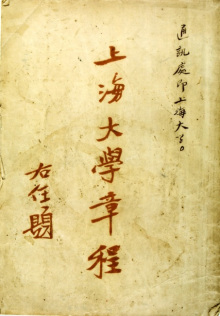 通訊處即上海大學
上海大學章程
右任題